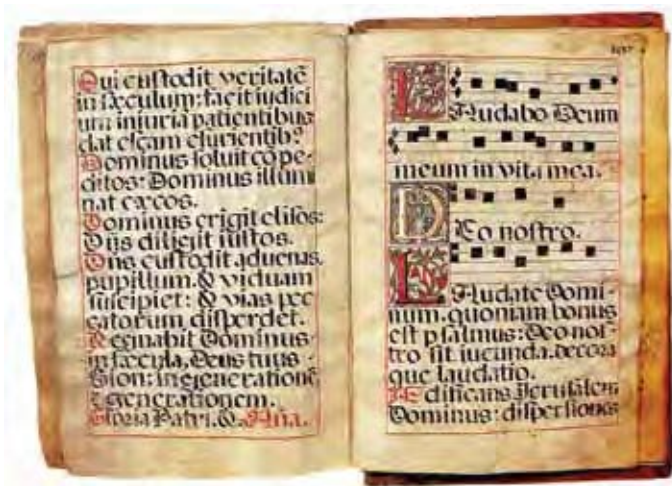 Qui custodit veritatē
in sæculum: facit iudici
um injuria patientibus
dat escam esurientib9
Dominus soluit cōpe-
ditos: Dominus illumi
nat cæcos.
Dominus erigit elisos:
Dñs diligit iustos.
Dñs custodit aduenas,
pupillum, & viduam
suscipiet: & vias pec
catorum disperdet.
Regnabit Dominus
in sæcula, Deus tuus
Sion: in generationē
& generationem.
Gloria Patri. &. Aña.
LAudabo Deum
meum in vita mea.
DEo nostro.
LAudate Domi-
num, quoniam bonus
est psalmus: Deo nos-
tro sit iucunda, decora
que laudatio.
Ædificans Jerusalem
Dominus: dispersiones